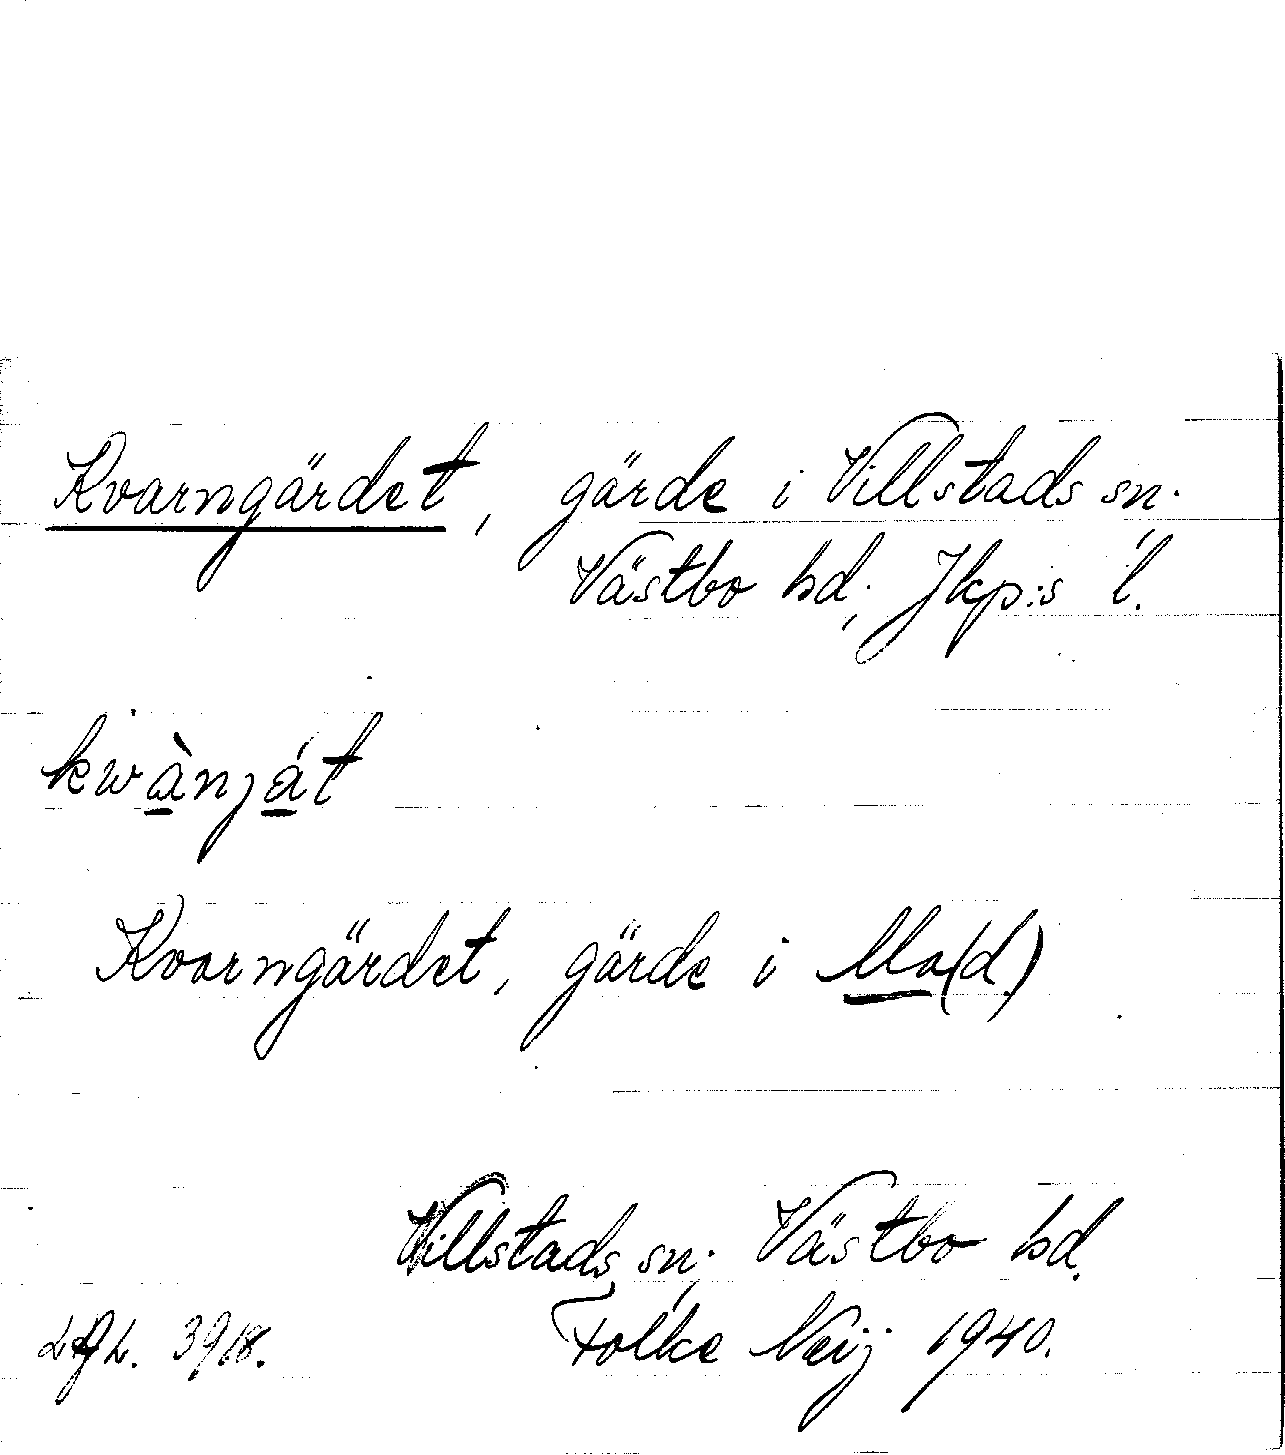 Kvarngärdet, gärde i Villstads sn.
Västbo hd; Jkp:s l.
kwànját
Kvarngärdet, gärde i Mo(d.)
Villstads sn; Västbo hd.
3918. Folke Neij 1940.